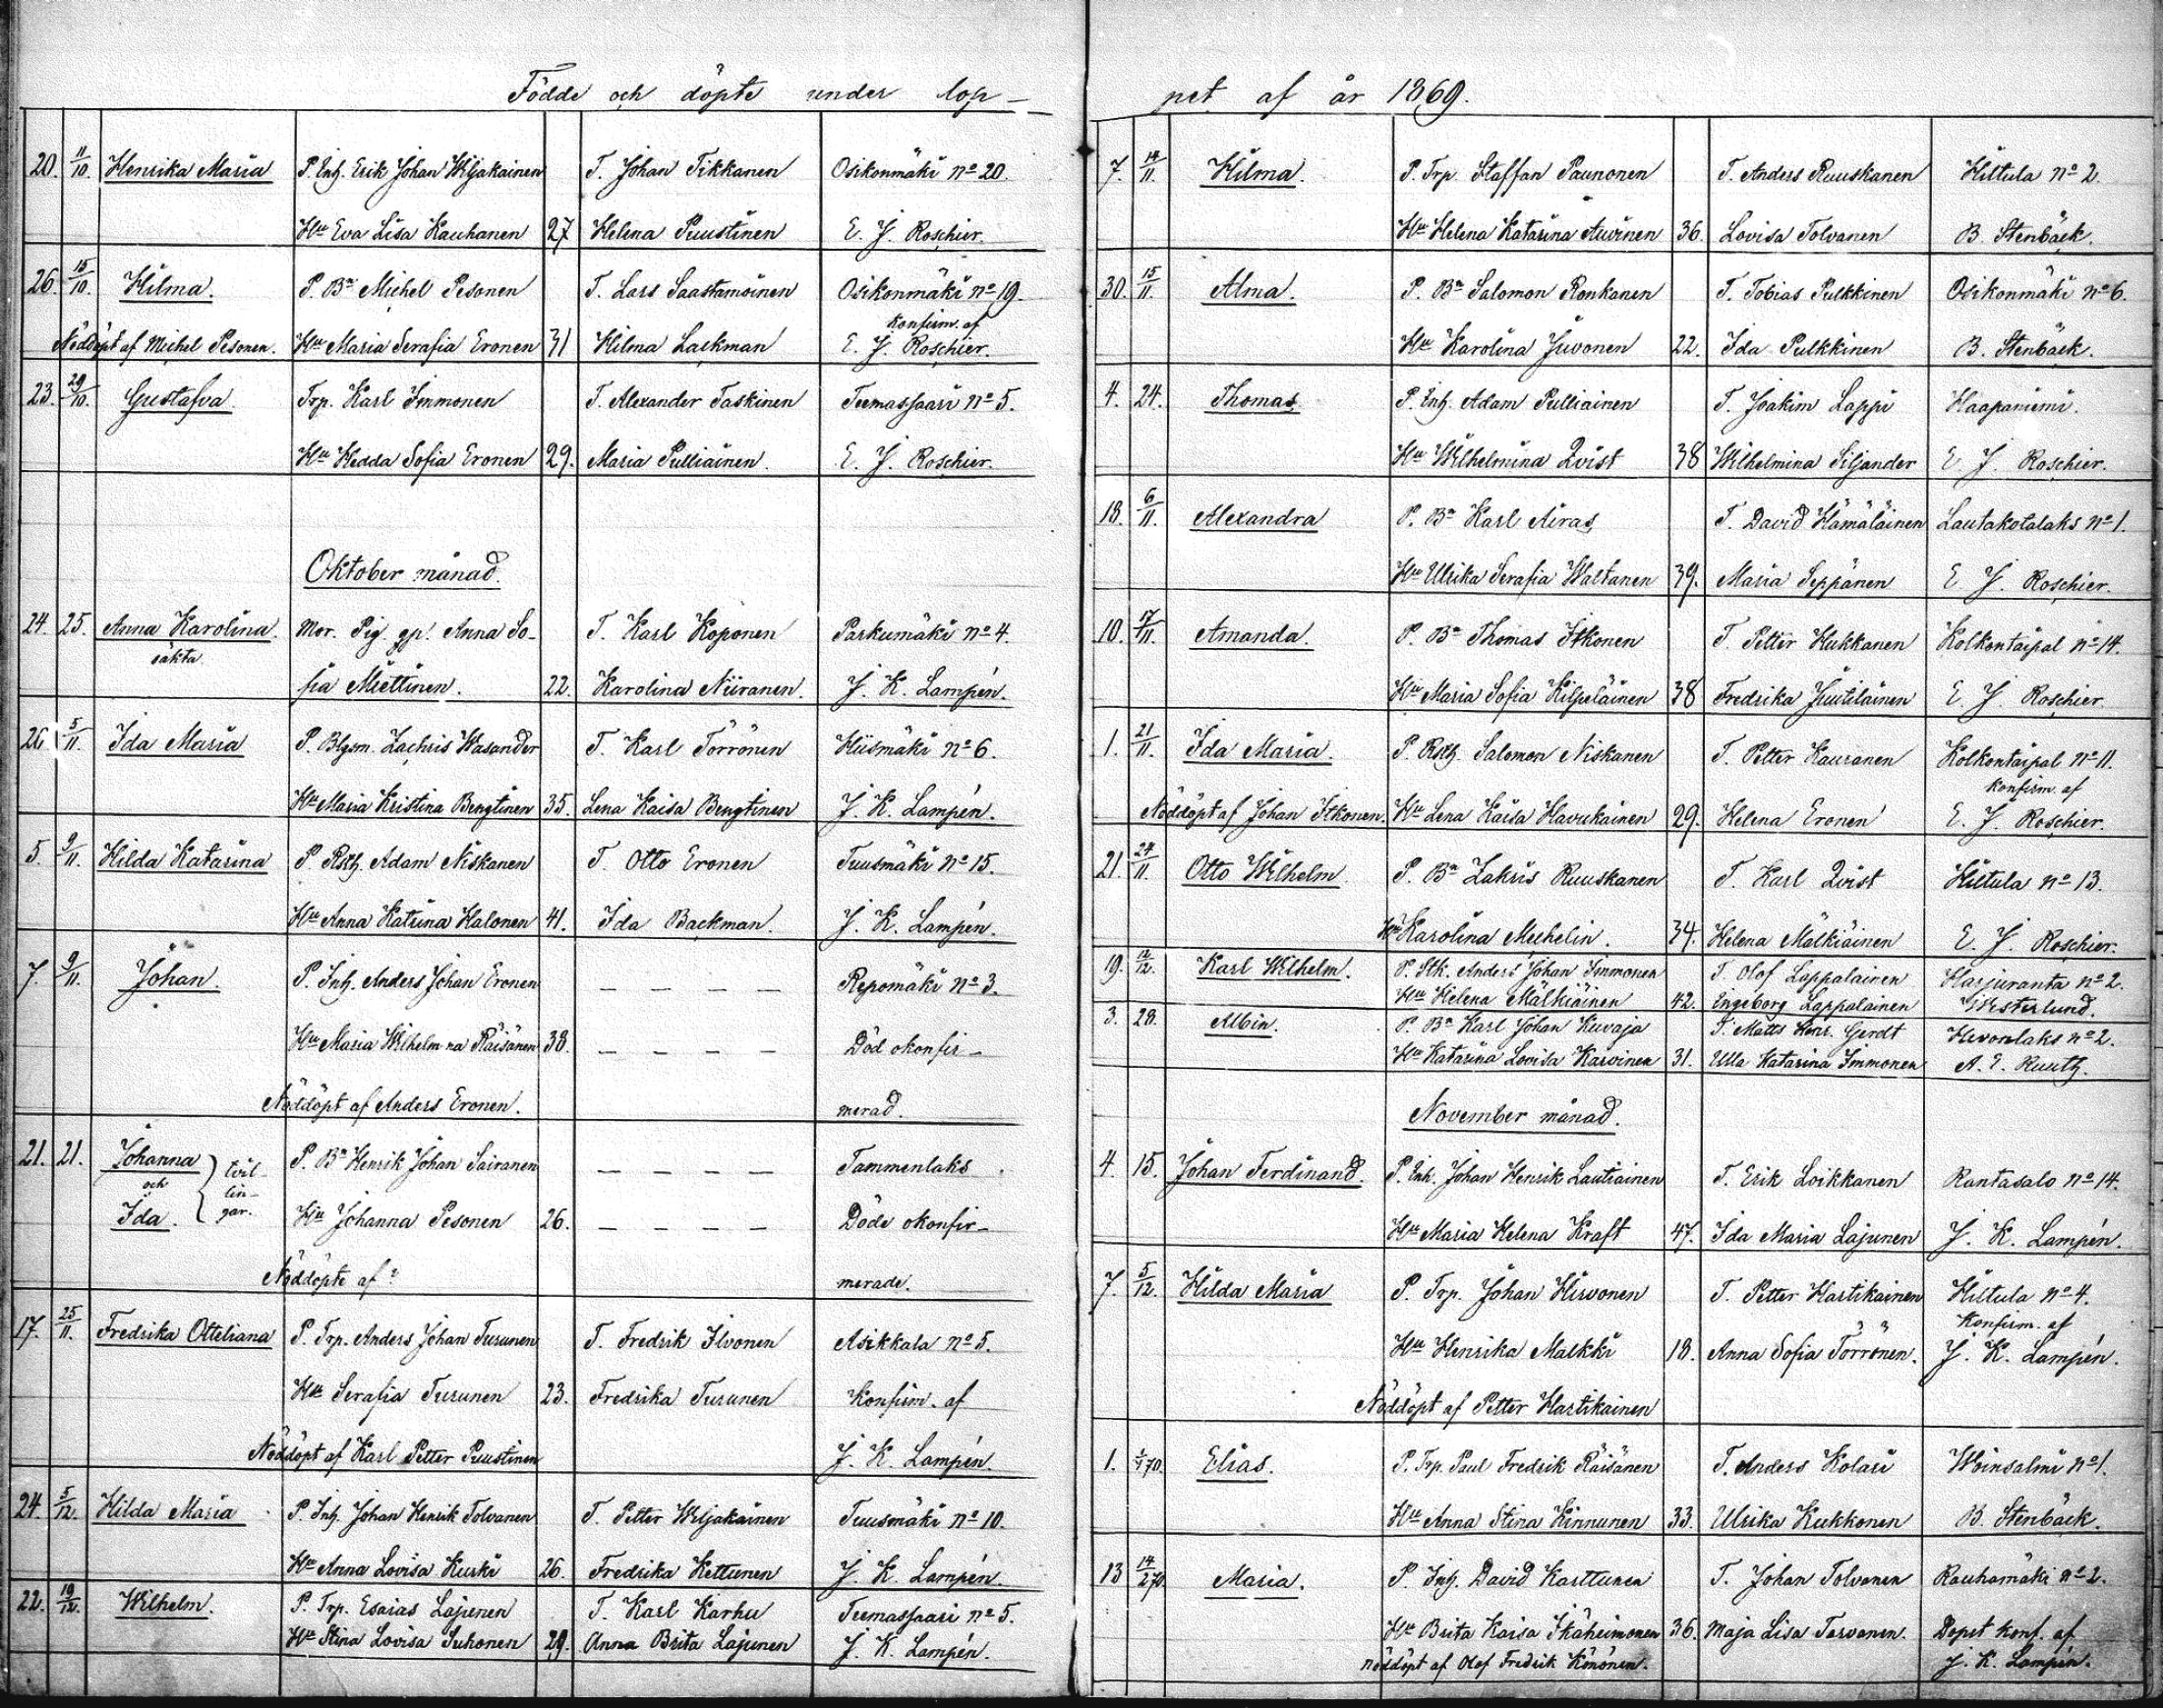 Födde och döpte under lop-
20. 11/10. Henrika Maria P. Inh. Erik Johan Wiljakainen T. Johan Tikkanen Osikonmäki No 20.
Hu Eva Lisa Kauhanen 27 Helena Puustinen E. J. Roschier.
26. 15/10. Hilma. P. Bn Michel Pesonen T. Lars Saastamoinen Osikonmäki No 19.
konfirm. af
Nöddöpt af Michel Pesonen. Hu Maria Serafia Eronen 31 Hilma Lackman E. J. Roschier.
23. 29/10. Gustafva Trp. Karl Immonen T. Alexander Taskinen Teemassaari No 5.
Hu Hedda Sofia Eronen 29. Maria Pulliainen. E. J. Roschier.
Oktober månad.
24. 25. Anna Karolina. Mor. Pig. gp! Anna So- T. Karl Koponen Parkumäki No 4.
oäkta.
fia Miettinen. 22. Karolina Niiranen. J. K. Lampén.
26 5/11. Ida Maria P. Blgsm. Zachris Wasander T. Karl Törrönen Hiismäki No 6.
Hu Maria Kristina Bengtinen 35. Lena Kaisa Bengtinen J. K. Lampén.
5. 9/11. Hilda Katarina P. Rsth. Adam Niskanen T. Otto Eronen Tuusmäki No 15.
Hu Anna Katrina Halonen 41. Ida Backman. J. K. Lampén.
7. 9/11. Johan. P. Inh. Anders Johan Eronen — — — — Repomäki No 3.
Hu Maria Wilhelmina Räisänen 38. — — — — Död okonfir-
Nöddöpt af Anders Eronen. merad.
21. 21. Johanna P. Bn Henrik Johan Sairanen — — — — Tammenlaks
och } tvil-
lin-
Ida. gar. Hu Johanna Pesonen 26. — — — — Döde okonfir-
Nöddöpte af? merade.
17. 25/11. Fredrika Otteliana P. Trp. Anders Johan Turunen T. Fredrik Ilvonen Asikkala No 5.
Hu Serafia Turunen 23. Fredrika Turunen Konfirm. af
Nöddöpt af Karl Petter Puustinen J. K. Lampén.
24. 5/12. Hilda Maria P. Inh. Johan Henrik Tolvanen T. Petter Wiljakainen Tuusmäki No 10.
Hu Anna Lovisa Kurki 26. Fredrika Kettunen J. K. Lampén.
22. 19/12. Wilhelm. P. Trp. Esaias Lajunen T. Karl Karhu Teemassaari No 5.
Hu Stina Lovisa Suhonen 29. Anna Brita Lajunen J. K. Lampén.
pet af år 1869.
7. 14/11. Hilma. P. Trp. Staffan Paunonen T. Anders Ruuskanen Hiltula No 2.
Hu Helena Katarina Auvinen 36. Lovisa Tolvanen B. Stenbäck.
30. 15/11. Alma. P. Bn Salomon Ronkanen T. Tobias Pulkkinen Osikonmäki No 6.
Hu Karolina Juvonen 22. Ida Pulkkinen B. Stenbäck.
4. 24. Thomas P. Inh. Adam Pulliainen T. Joakim Lappi Haapaniemi.
Hu Wilhelmina Qvist 38 Wilhelmina Siljander E. J. Roschier.
18. 6/11. Alexandra P. Bn Karl Airas T. David Hämäläinen Lautakotalaks No 1.
Hu Ulrika Serafia Waltanen 39. Maria Seppänen E. J. Roschier.
10. 17/11. Amanda. P. Bn Thomas Itkonen T. Petter Hukkanen Kolkontaipal No 14.
Hu Maria Sofia Kilpeläinen 38 Fredrika Juutilainen E. J. Roschier
1. 21/11. Ida Maria. P. Rsth. Salomon Niskanen T. Petter Kauranen Kolkontaipal No 11.
konfirm. af
Nöddöpt af Johan Itkonen. Hu Lena Kaisa Havukainen 29. Helena Eronen E. J. Roschier.
21. 24/11. Otto Wilhelm P. Bn Zakris Ruuskanen T. Karl Qvist Hiltula No 13.
Hu Karolina Mechelin. 34. Helena Mälkiäinen E. J. Roschier.
19. 12/12. Karl Wilhelm. P. Stk. Anders Johan Immonen T. Olof Lappalainen Harjuranta No 2.
Hu Helena Mälkiäinen 42. Ingeborg Lappalainen Westerlund.
3. 28. Albin. P. Bn Karl Johan Kuvaja T. Matts Henr. Gerdt Hevonlaks No 2.
Hu Katarina Lovisa Karvinen 31. Ulla Katarina Immonen A. E. Ruuth.
November månad.
4. 15. Johan Ferdinand. P. Inh. Johan Henrik Lautiainen T. Erik Loikkanen Rantasalo No 14.
Hu Maria Helena Kraft 47. Ida Maria Lajunen J. K. Lampén.
7. 5/12. Hilda Maria P. Trp. Johan Hirvonen T. Petter Hartikainen Hiltula No 4.
Konfirm. af
Hu Henrika Malkki 18. Anna Sofia Törrönen. J. K. Lampén.
Nöddöpt af Petter Hartikainen
1. 70. Elias. P. Trp. Paul Fredrik Räisänen T. Anders Kolari Woinsalmi No 1.
Hu Anna Stina Kinnunen 33. Ulrika Kukkonen B. Stenbäck.
13 14/2 70. Maria. P. Inh. David Karttunen T. Johan Tolvanen Rauhamäki No 2.
Hu Brita Kaisa Ikäheimonen 36. Maja Lisa Tarvanen. Dopet konf. af
Nöddöpt af Olof Fredrik Könönen. J. K. Lampén.